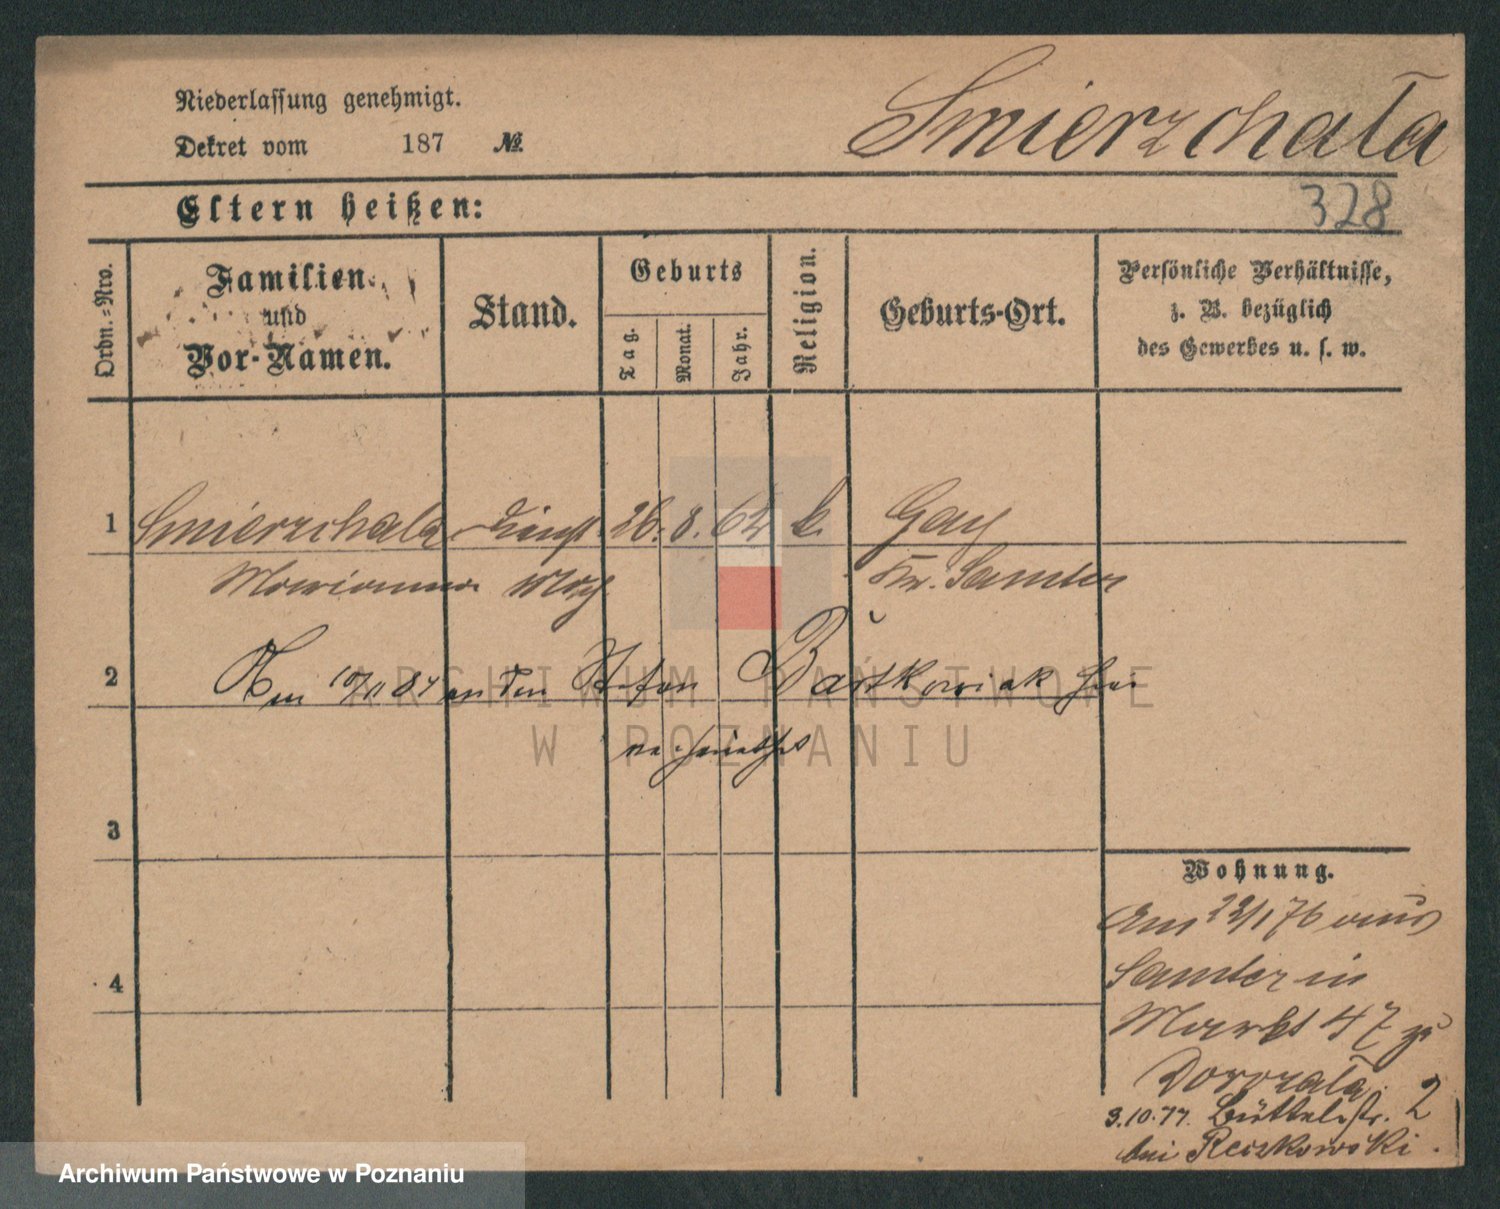 Niederlassung genehmigt.
Dekret vom 187 №
Smierzchała
328
Eltern heißen:
Ordn.=Nro.
Familien
und
Vor-Namen.
Stand.
Geburts
Tag.
Monat.
Jahr.
Religion.
Geburts-Ort.
Persönliche Verhältnisse,
z. B. bezüglich
des Gewerbes u. s. w.
1 Smierzchala 26. 8. 62 k. Gay
Marianna Kr. Samter
2 Am 10/11 84 an den Stefan Bartkowiak hier
verheirathet
3
4
Wohnung.
Am 22/1 76 aus
Samter in
Markt 47 zu
Dorozała
3.10.77. Büttelstr. 2
bei Reszkowski.
ARCHIWUM PAŃSTWOWE
W POZNANIU
Archiwum Państwowe w Poznaniu